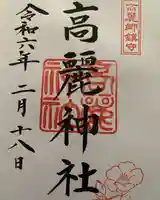 高麗郷鎮守
高麗神社
令和六年
二月十八日
高麗
神社